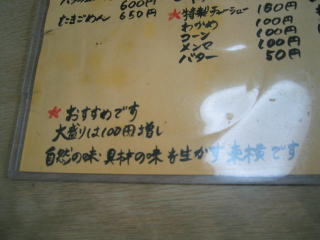 600円
たまごめん 650円
★特製チャーシュー 150円
わかめ 100円
コーン 100円
メンマ 100円
バター 50円
★おすすめです
大盛りは100円増し
自然の味・具材の味を生かす東横です